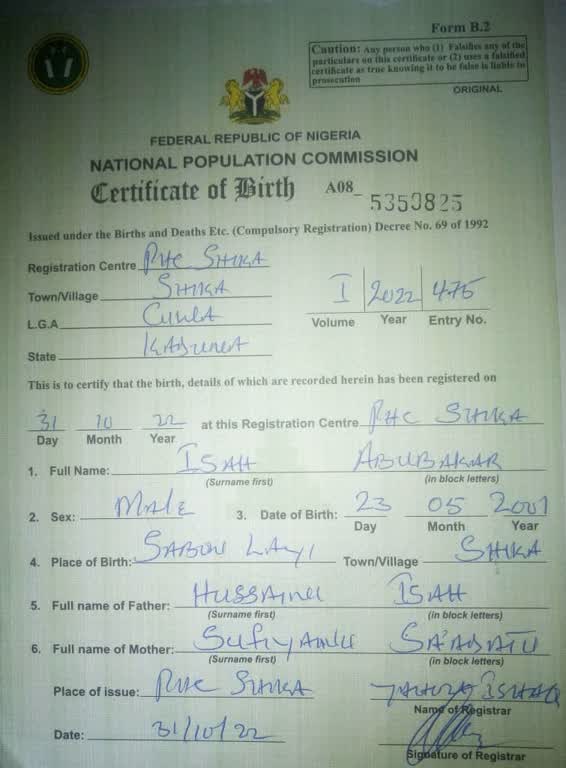 Form B.2
Caution: Any person who (1) Falsifies any of the
particulars on this certificate or (2) uses a falsified
certificate as true knowing it to be false is liable to
prosecution
ORIGINAL
FEDERAL REPUBLIC OF NIGERIA
NATIONAL POPULATION COMMISSION
Certificate of Birth A08_ 5359825
Issued under the Births and Deaths Etc. (Compulsory Registration) Decree No. 69 of 1992
Registration Centre PHC SHIKA
Town/Village SHIKA
I 2022 475
Volume Year Entry No.
L.G.A
State KADUNA
This is to certify that the birth, details of which are recorded herein has been registered on
31 10 22 at this Registration Centre PHC SHIKA
Day Month Year
1. Full Name: ISAH ABUBAKAR
(Surname first) (in block letters)
2. Sex: MALE 3. Date of Birth: 23 05 2001
Day Month Year
4. Place of Birth: SABON LAYI Town/Village SHIKA
5. Full name of Father: HUSSAINI ISAH
(Surname first) (in block letters)
6. Full name of Mother: SUFIYANU SA'ADATU
(Surname first) (in block letters)
Place of issue: PHC SHIKA
Name of Registrar
Date: 31/10/22
Signature of Registrar